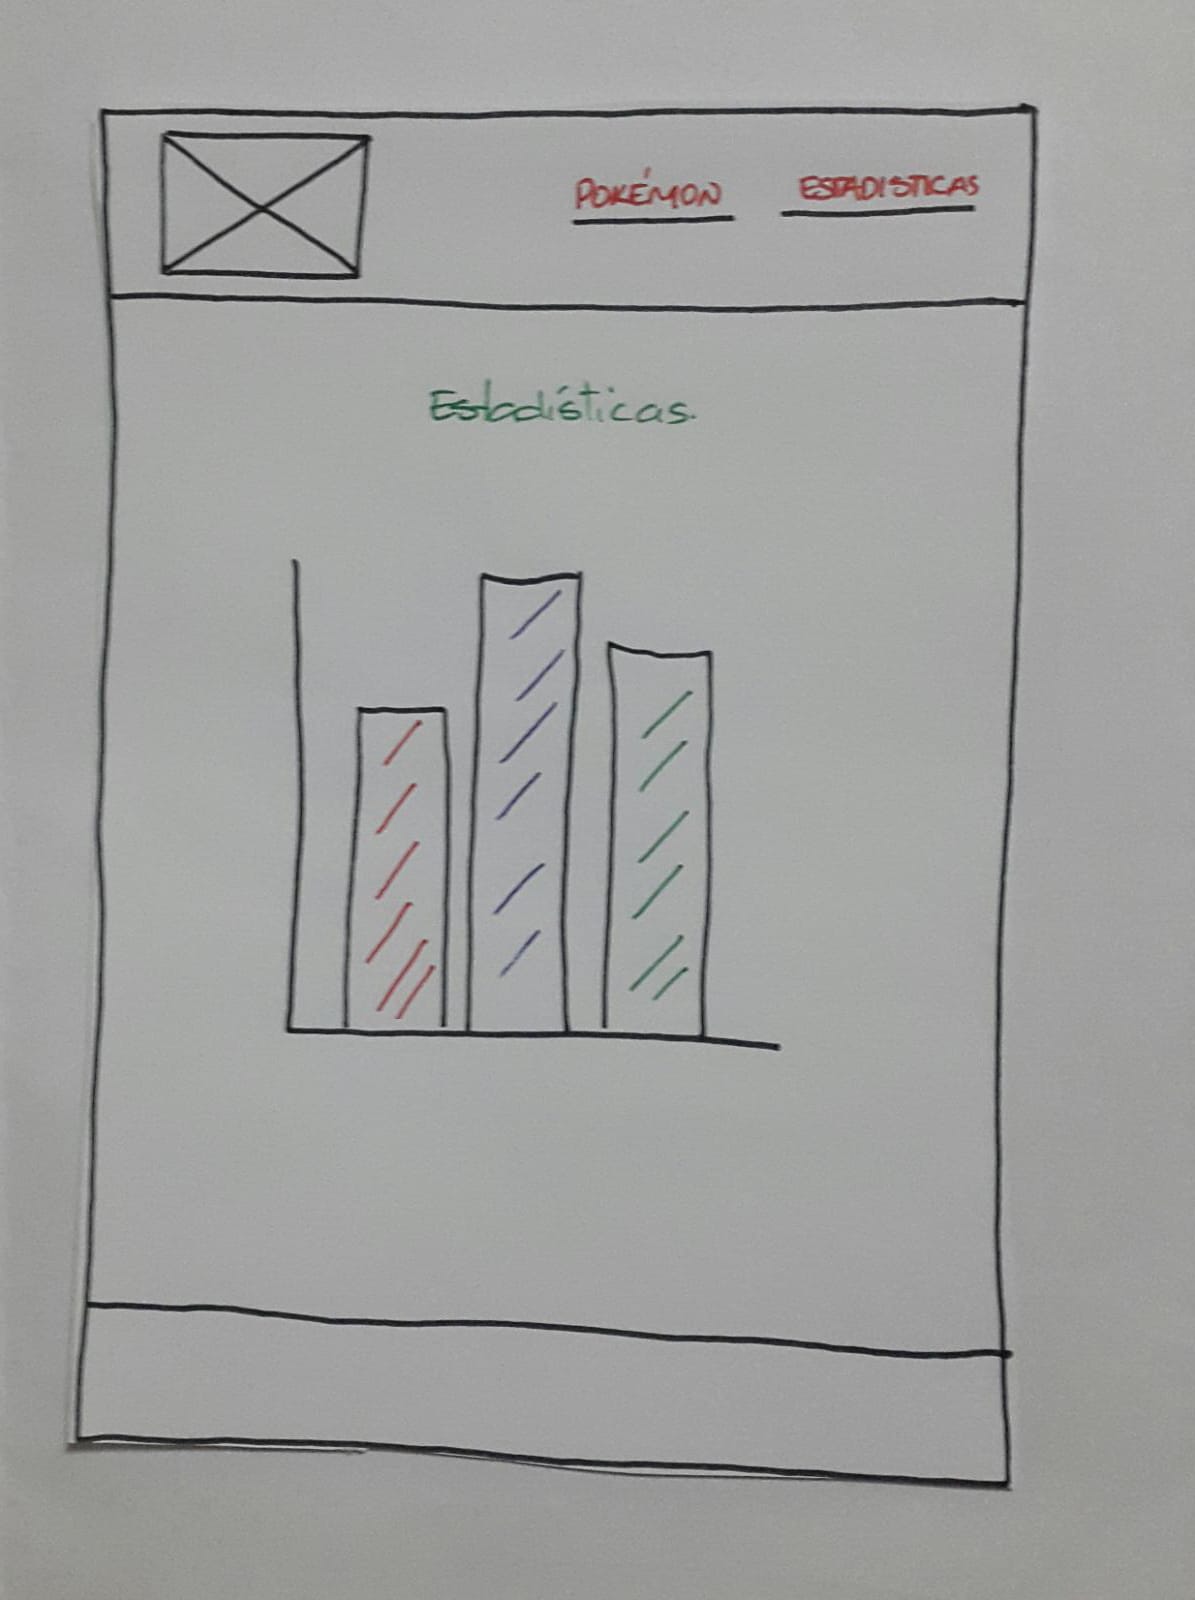 POKÉMON
ESTADISTICAS
Estadísticas.